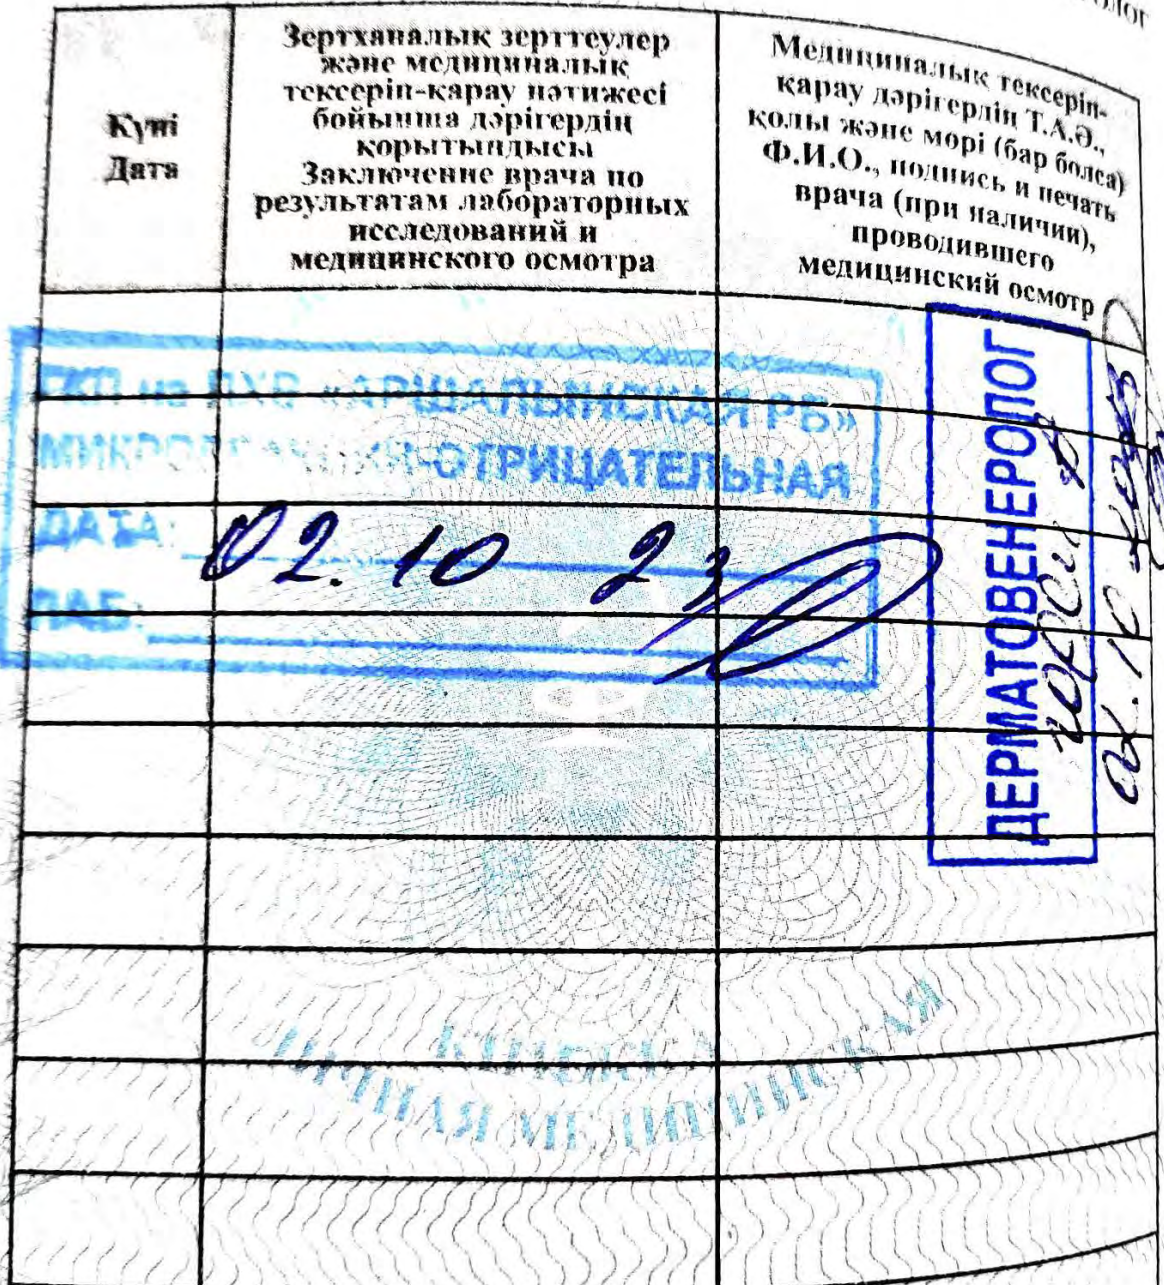 Күні
Дата
Зертханалық зерттеулер
және медициналық
тексеріп-қарау нәтижесі
бойынша дәрігердің
қорытындысы
Заключение врача по
результатам лабораторных
исследований и
медицинского осмотра
Медициналық тексеріп-
қарау дәрігердің Т.А.Ә.,
қолы және мөрі (бар болса)
Ф.И.О., подпись и печать
врача (при наличии),
проводившего
медицинский осмотр
ГКП на ПХВ «АРШАЛЫНСКАЯ РБ»
МИКРОРЕАКЦИЯ-ОТРИЦАТЕЛЬНАЯ
ДАТА: 02.10 23
ЛАБ:
ДЕРМАТОВЕНЕРОЛОГ
КНИЖКА
ЛИЧНАЯ МЕДИЦИНСКАЯ